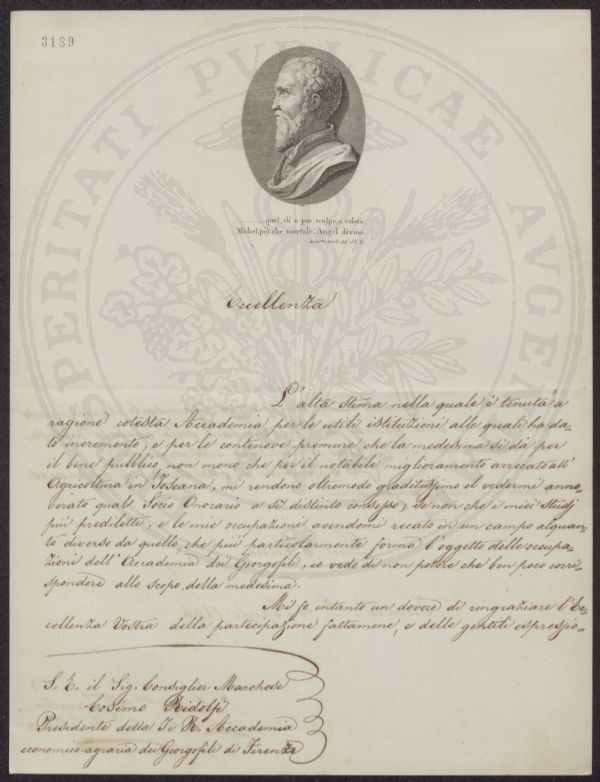 3189
PROSPERITATI PUBLICAE AUGENDAE
quel, ch'a par sculpe, e colora
Michel, più che mortale, Angel divino.
Eccellenza
L'alta stima nella quale è tenuta a
ragione cotesta Accademia per le utili istituzioni alle quali ha da-
to incremento, e per le continove premure che la medesima si dà per
il bene pubblico, non meno che per il notabile miglioramento arrecato all'
Agricoltura in Toscana, mi rendono oltremodo graditissimo il vedermi anno-
verato qual Socio Onorario a sì distinto consesso; se non che i miei Studj
più prediletti, e le mie occupazioni avendomi recato in un campo alquan-
to diverso da quello, che più particolarmente forma l'oggetto delle occupa-
zioni dell'Accademia dei Georgofili, io vedo di non potere che ben poco corri-
spondere allo scopo della medesima.
Mi fo intanto un dovere di ringraziare l'Ec-
cellenza Vostra della partecipazione fattamene, e delle gentili espressio-
S. E. il Sig. Consiglier Marchese
Cosimo Ridolfi
Presidente della I. e R. Accademia
economico-agraria dei Georgofili di Firenze